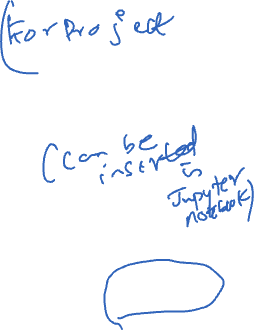 (For Project
(can be
instrted
in
Jupyter
notebook)